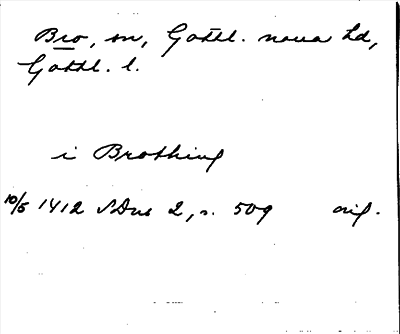 Bro, sn, Gottl. norra hd,
Gottl. l.
i Brothing
10/5 1412 SDns 2, s. 509 orig.